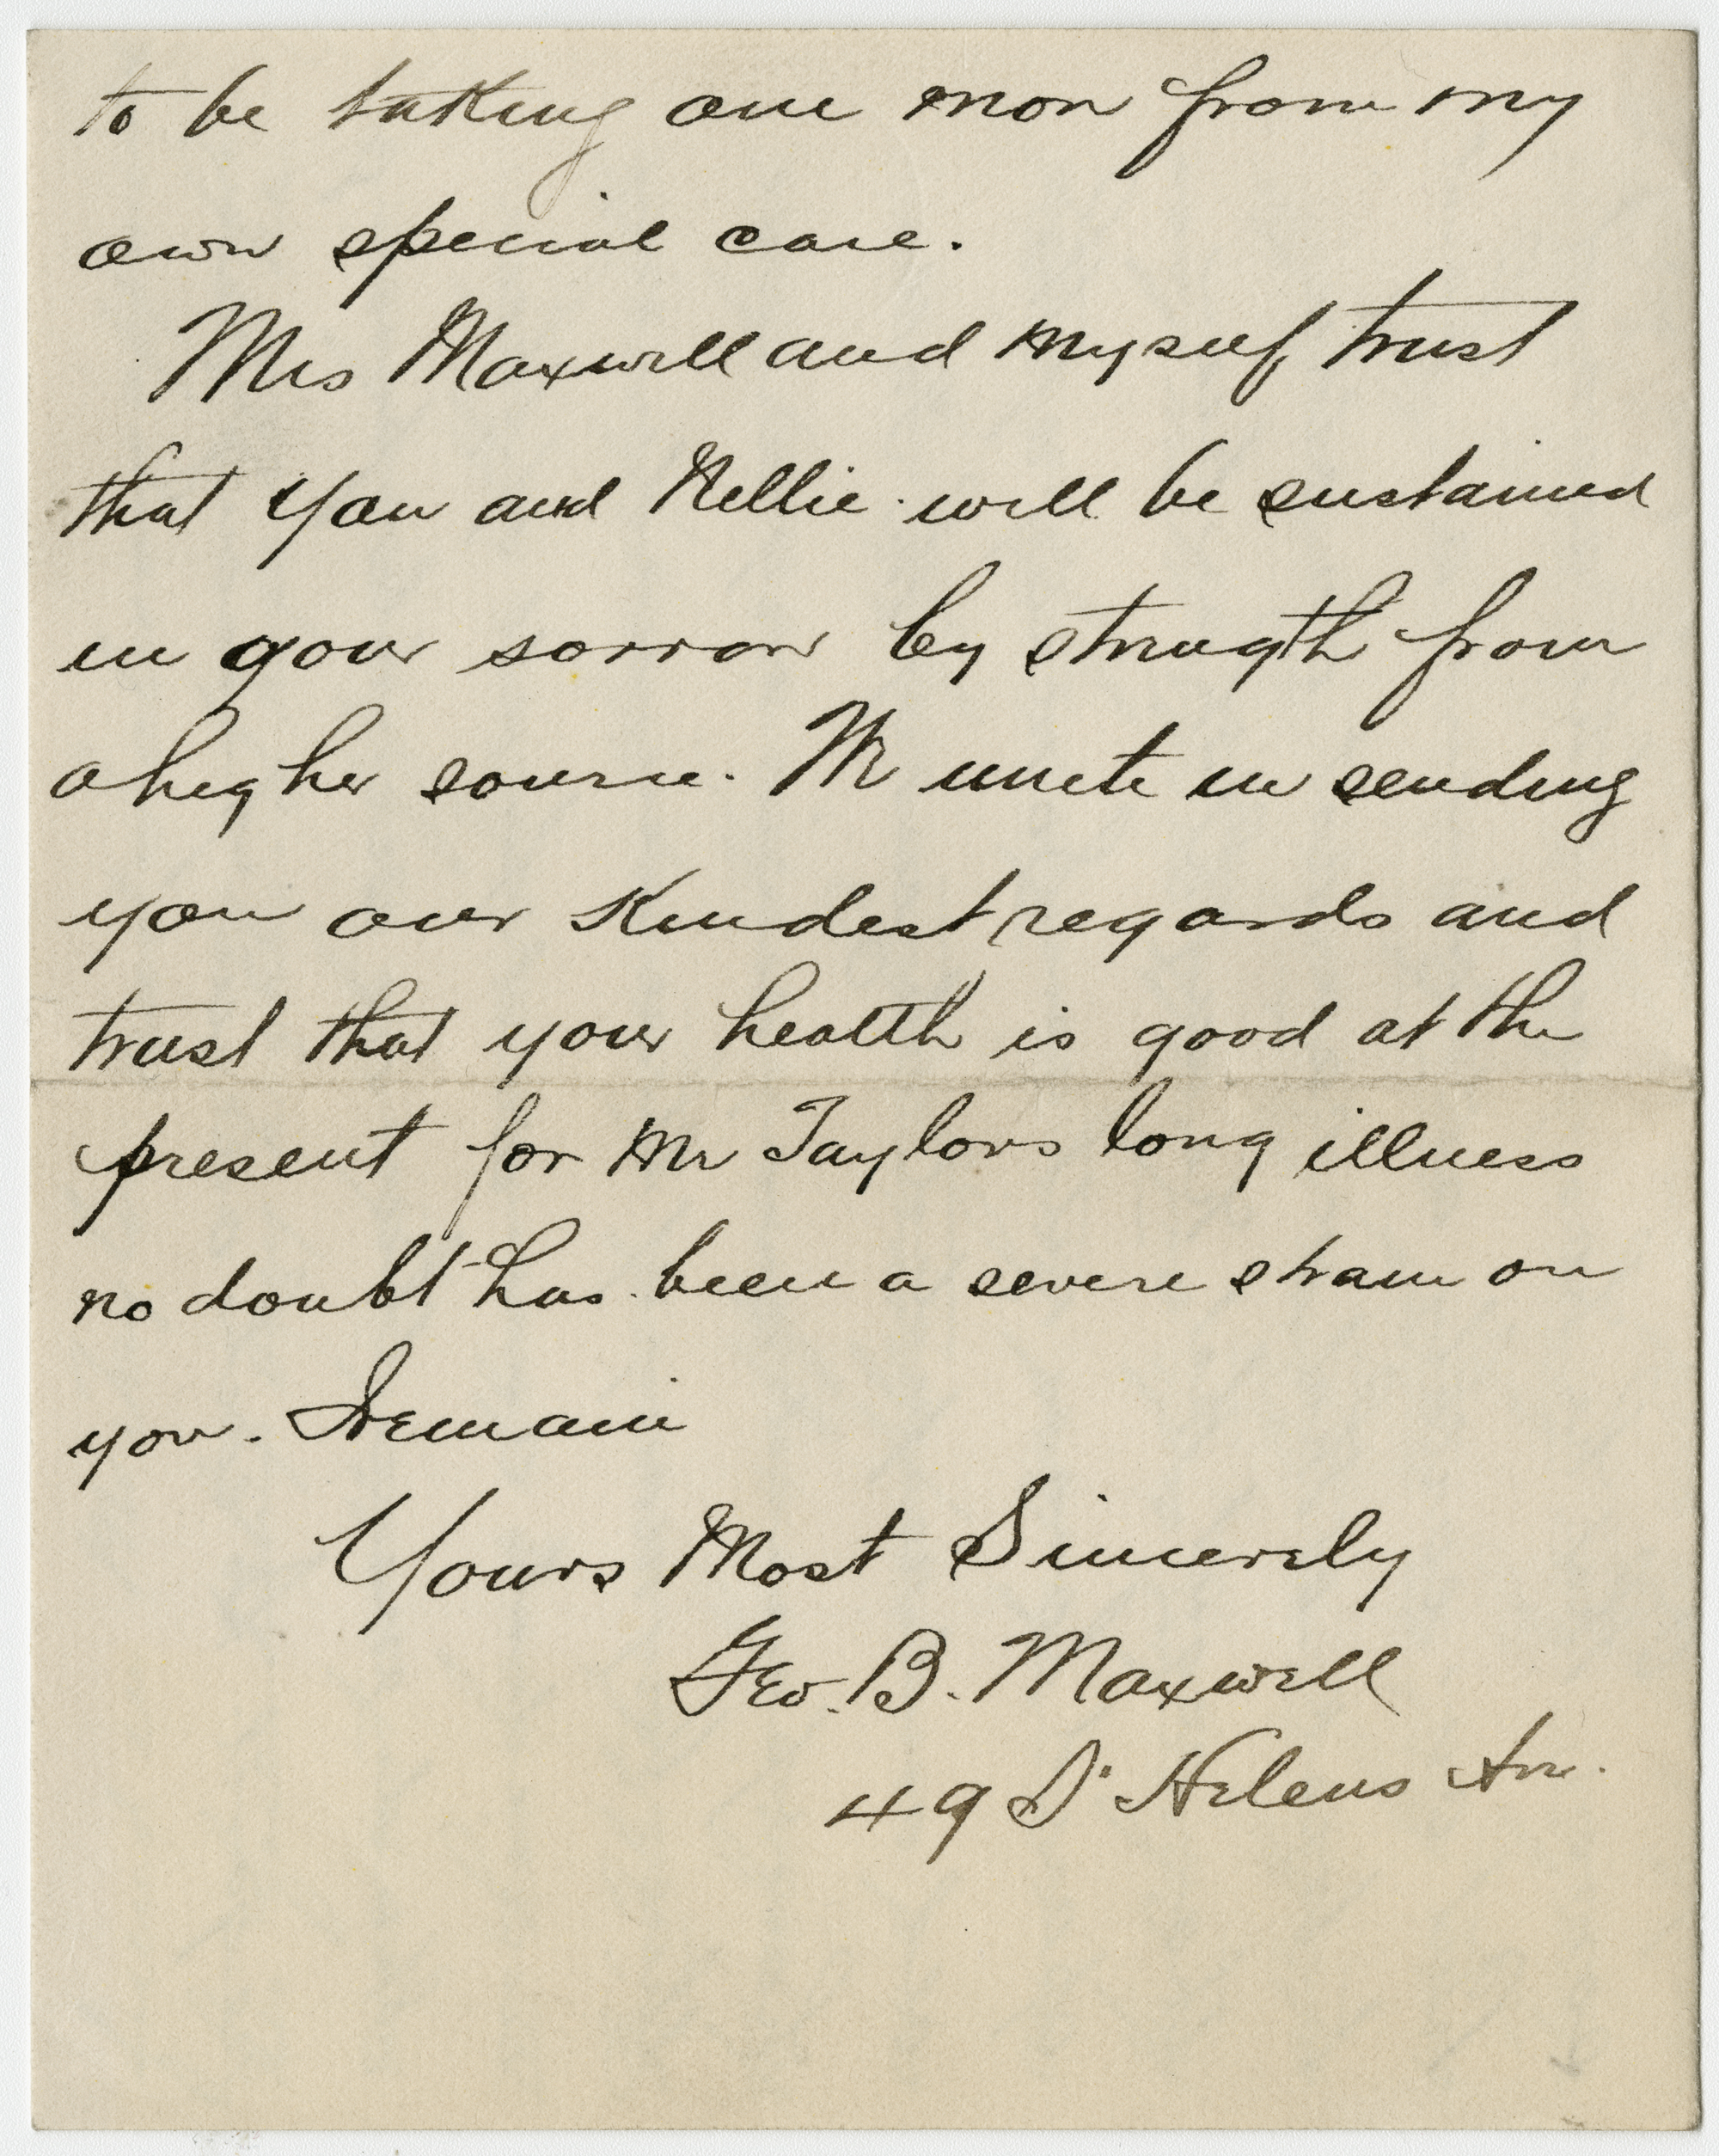 to be taking one more from my
own special care.
Mrs Maxwell and myself trust
that you and Nellie will be sustained
in your sorrow by strength from
a higher source. We unite in sending
you our kindest regards and
trust that your health is good at the
present for Mr Taylors long illness
no doubt has been a severe strain on
you. I remain
Yours Most Sincerely
Geo. B. Maxwell
49 St Helens Ave.